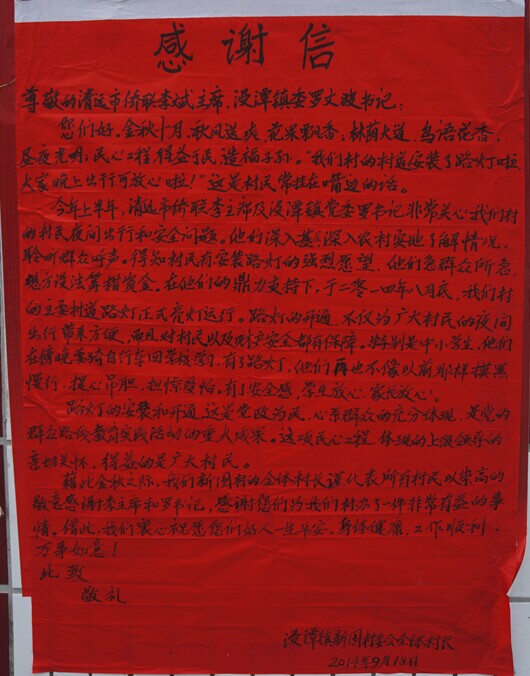 感谢信
尊敬的清远市侨联李斌主席、浸潭镇委罗文政书记:
您们好,金秋十月,秋风送爽,花果飘香;林荫大道,鸟语花香,
昼夜光明;民心工程,得益于民,造福子孙。"我们村的村道安装了路灯啦,
大家晚上出行可放心啦!"这是村民常挂在嘴边的话。
今年上半年,清远市侨联李主席及浸潭镇党委罗书记非常关心我们村
的村民夜间出行和安全问题。他们深入基层深入农村实地了解情况,
聆听群众呼声。得知村民有安装路灯的强烈愿望,他们急群众所急,
想方设法筹措资金,在他们的鼎力支持下,于二零一四年八月底,我们村
的主要村道路灯正式亮灯运行。路灯的开通,不仅为广大村民的夜间
出行带来方便,而且对村民以及财产安全都有保障。特别是中小学生,他们
在傍晚要骑自行车回学校学习,有了路灯,他们再也不像以前那样摸黑
慢行,提心吊胆,担惊受怕。有了安全感,学生放心,家长放心。
路灯的安装和开通,这是党政为民,心系群众的充分体现,是党的
群众路线教育实践活动的重大成果。这项民心工程,体现的上级领导的
亲切关怀,得益的是广大村民。
藉此金秋之际,我们新围村的全体村长谨代表所有村民以崇高的
敬意感谢李主席和罗书记,感谢您们为我们村办了一件非常有益的事
情。借此,我们衷心祝愿您们好人一生平安,身体健康,工作顺利,
万事如意!
此致
敬礼
浸潭镇新围村委会全体村长
2014年9月18日